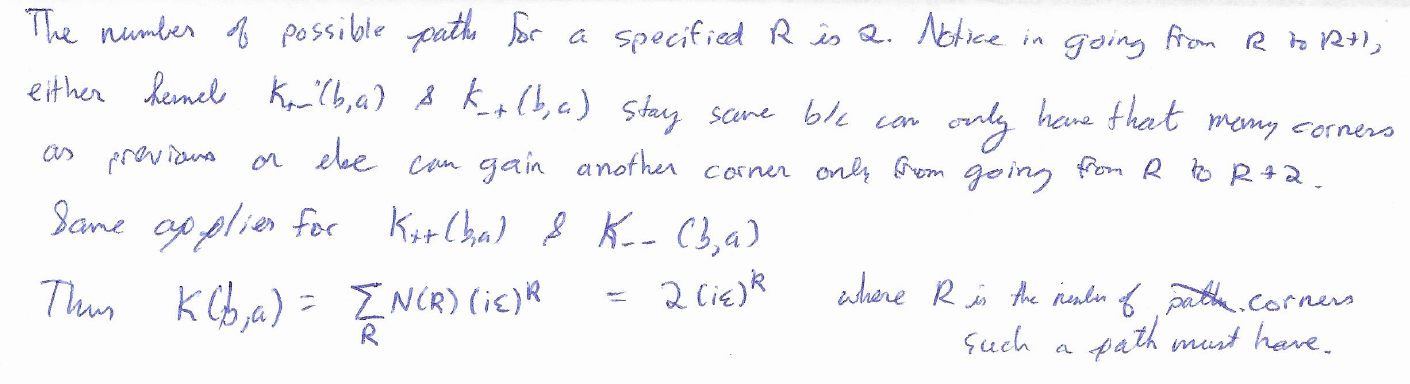 The number of possible paths for a specified R is 2. Notice in going from R to R+1,
either kernels K₊₋(b,a) & K₋₊(b,a) stay same b/c can only have that many corners
as previous or else can gain another corner only from going from R to R+2.
Same applies for K₊₊(b,a) & K₋₋(b,a)
Thus K(b,a) = ∑_R N(R)(iε)^R = 2(iε)^R where R is the number of corners
such a path must have.